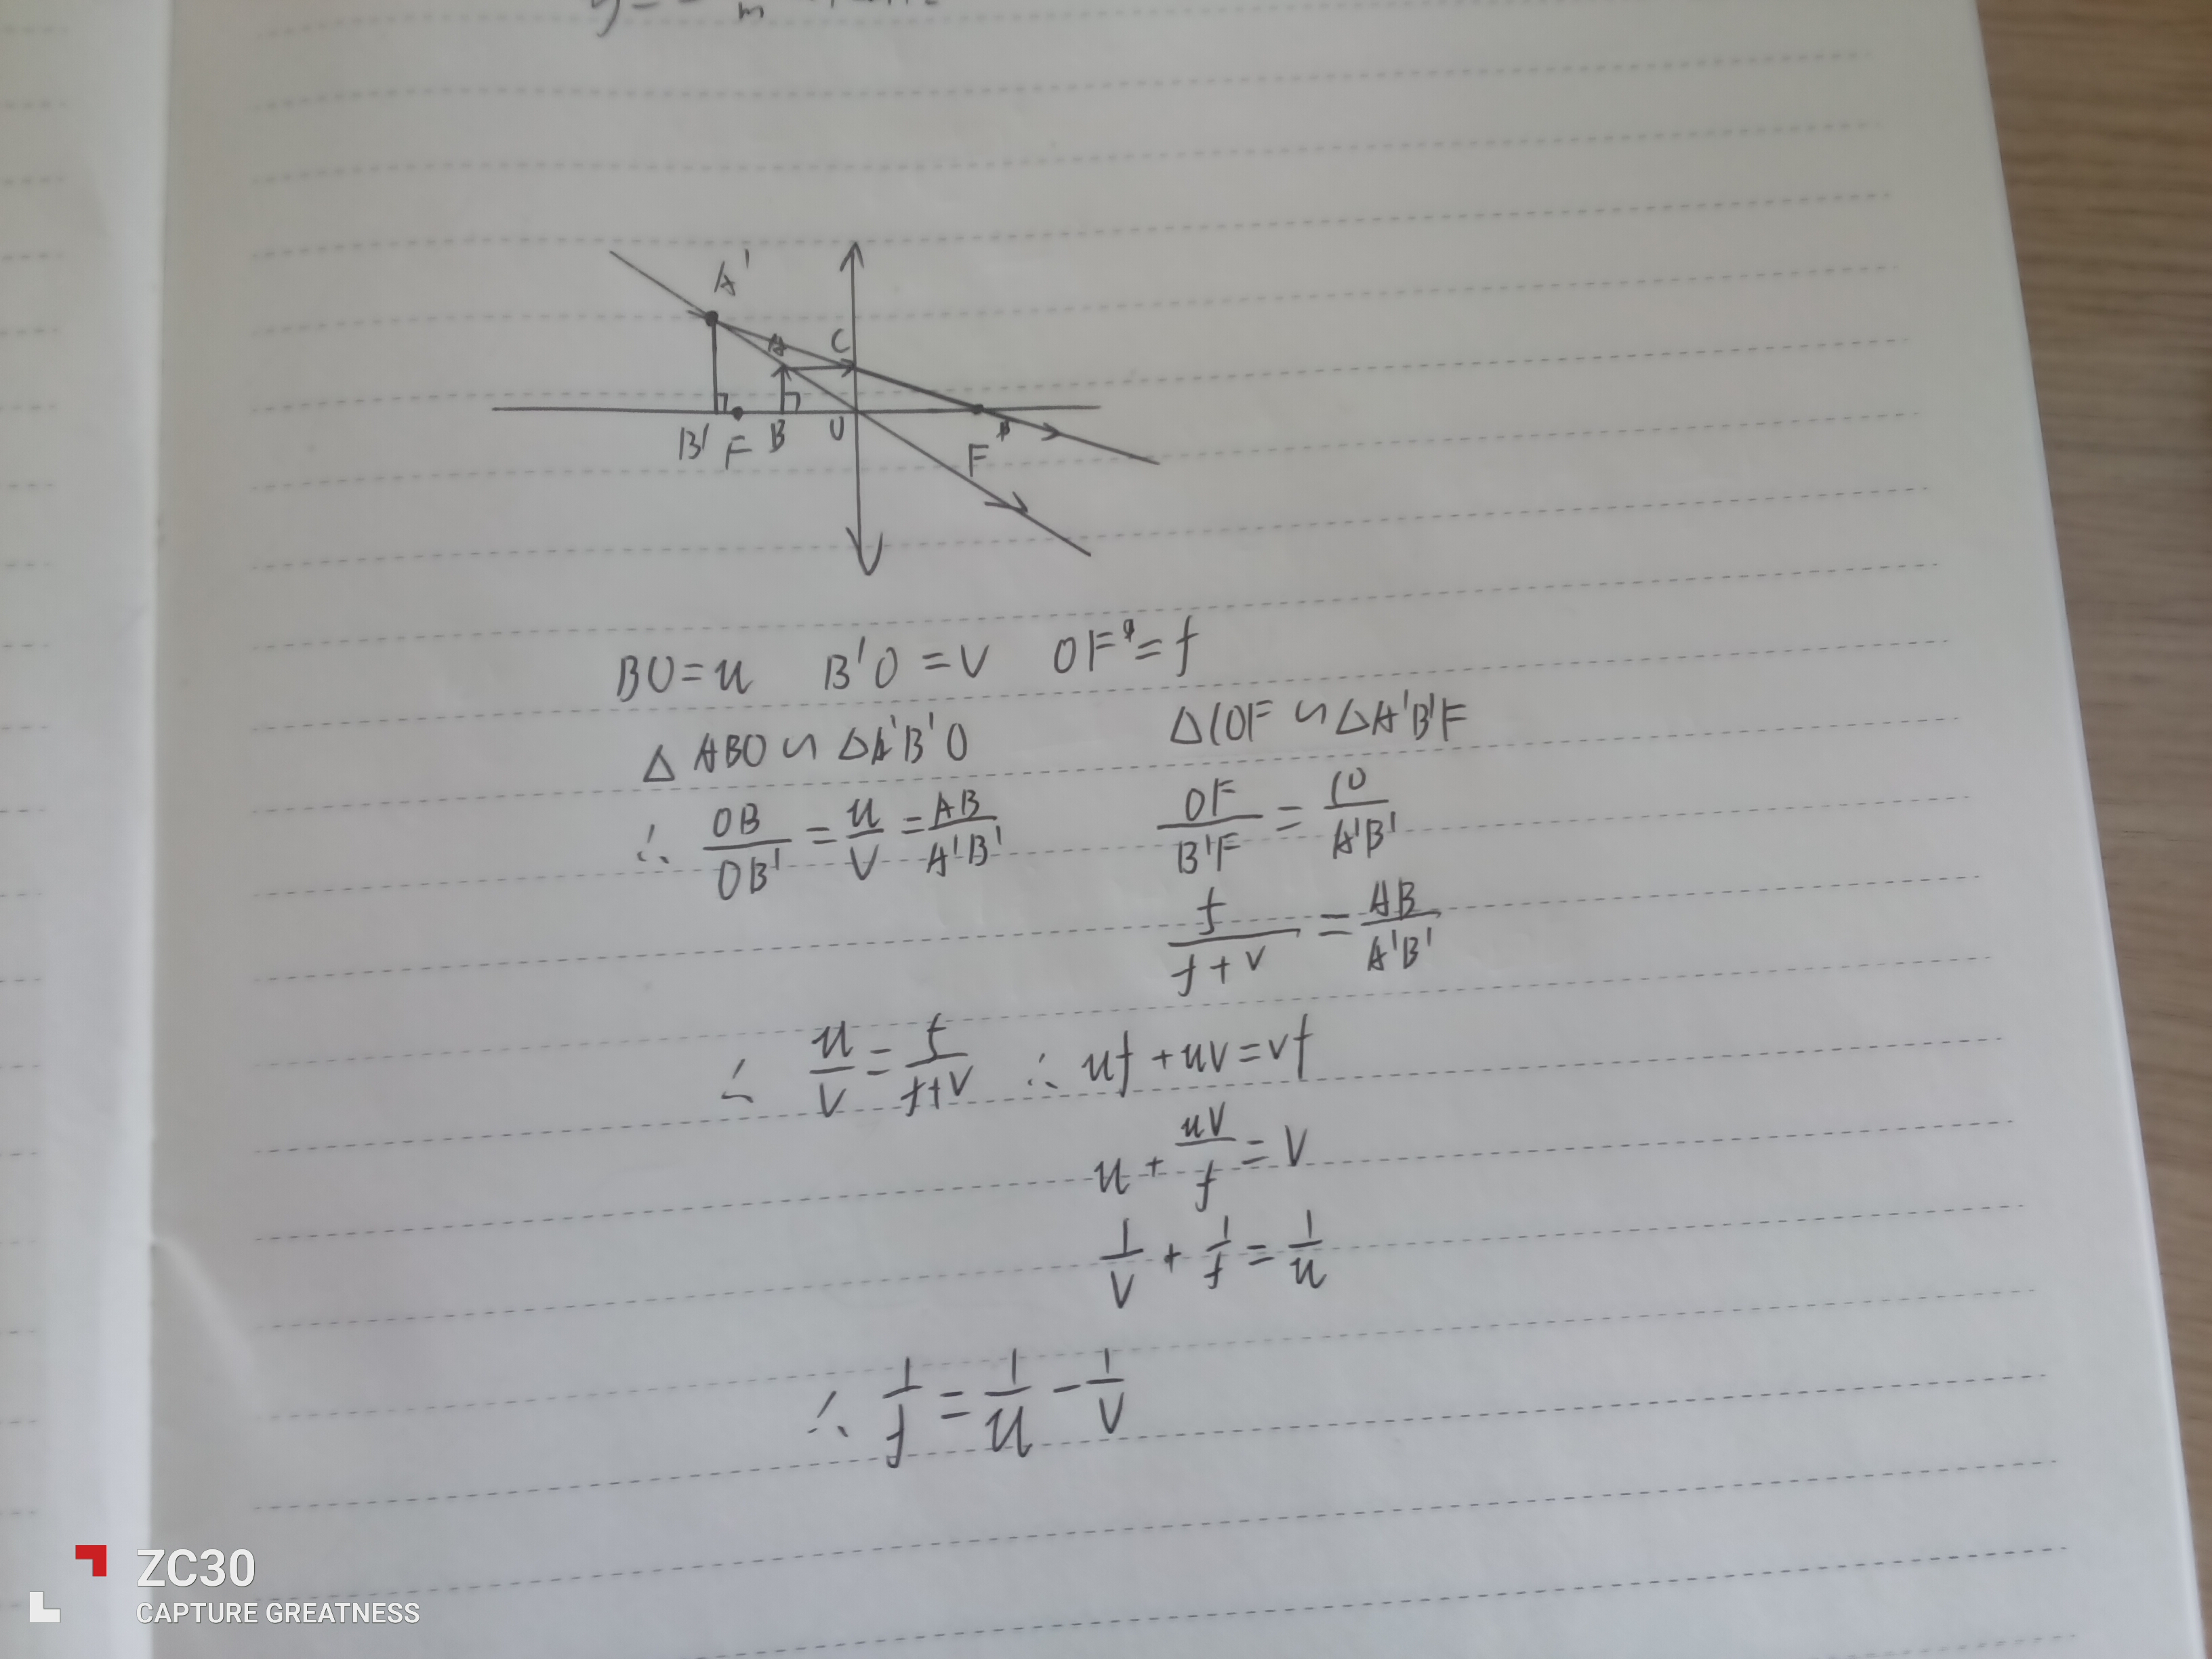 A'
A C
B' F B O F
BO=u B'O=v OF=f
△ABO∽△A'B'O △COF∽△A'B'F
∴ OB/OB' = u/v = AB/A'B' OF/B'F = CO/A'B'
f/(f+v) = AB/A'B'
∴ u/v = f/(f+v) ∴ uf+uv=vf
u + uv/f = v
1/v + 1/f = 1/u
∴ 1/f = 1/u - 1/v
ZC30
CAPTURE GREATNESS